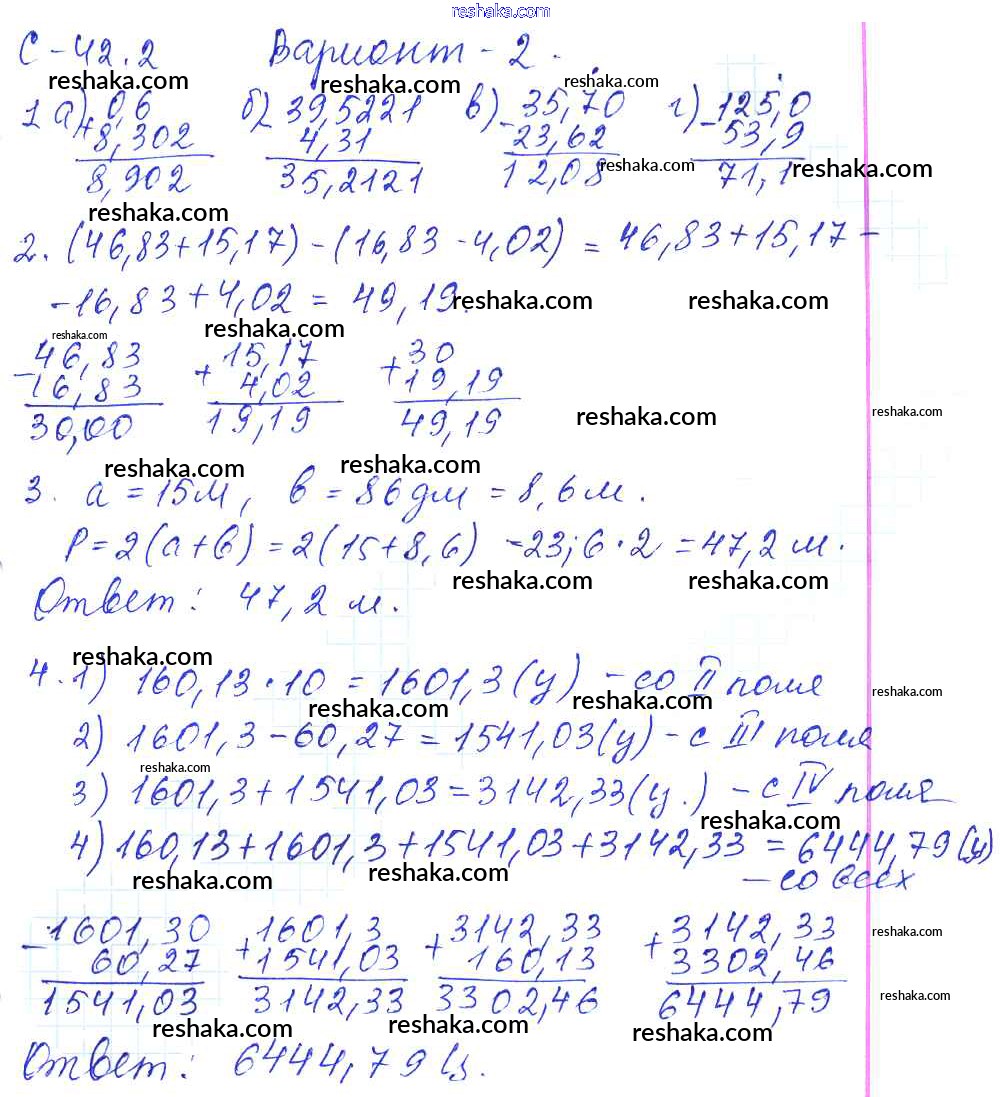 reshaka.com
С-42.2 Вариант-2.
reshaka.com reshaka.com reshaka.com
1 а) 0,6 б) 39,5221 в) 35,70 г) 125,0
+8,302 4,31 -23,62 -53,9
8,902 35,2121 12,08 71,1
reshaka.com reshaka.com
reshaka.com
2. (46,83+15,17)-(16,83-4,02)=46,83+15,17-
-16,83+4,02=49,19.
reshaka.com reshaka.com reshaka.com
reshaka.com
-46,83 +15,17 +30
16,83 4,02 19,19
30,00 19,19 49,19
reshaka.com reshaka.com
reshaka.com reshaka.com
3. a=15м, b=86дм=8,6м.
P=2(a+b)=2(15+8,6)=23,6·2=47,2м.
reshaka.com reshaka.com
Ответ: 47,2 м.
reshaka.com
4.1) 160,13·10=1601,3(ц)-со II поля
reshaka.com reshaka.com reshaka.com
2) 1601,3-60,27=1541,03(ц)-с III поля
reshaka.com
3) 1601,3+1541,03=3142,33(ц.)-с IV поля
reshaka.com
4) 160,13+1601,3+1541,03+3142,33=6444,79(ц)
-со всех
reshaka.com reshaka.com
-1601,30 +1601,3 +3142,33 +3142,33
60,27 1541,03 160,13 3302,46
1541,03 3142,33 3302,46 6444,79
reshaka.com reshaka.com
reshaka.com reshaka.com reshaka.com
Ответ: 6444,79ц.